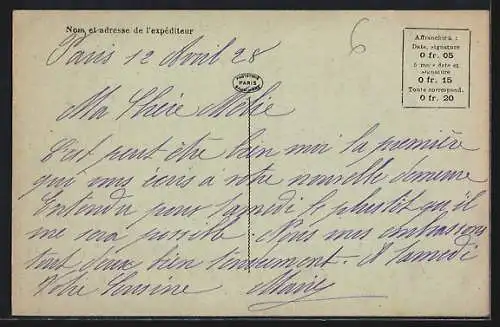 Nom et adresse de l'expéditeur
Paris 12 Avril 28
6
Affranchir à :
Date, signature
0 fr. 05
5 mots date et
signature
0 fr. 15
Toute correspond.
0 fr. 20
PARIS
Ma Chère
C'est peut être bien moi la première
qui vous écris à votre nouvelle demeure
Entendu pour Samedi le plus tôt qu'il
me sera possible. Après mes embrassons
tout deux bien tendrement. A Samedi
Votre Cousine Marie